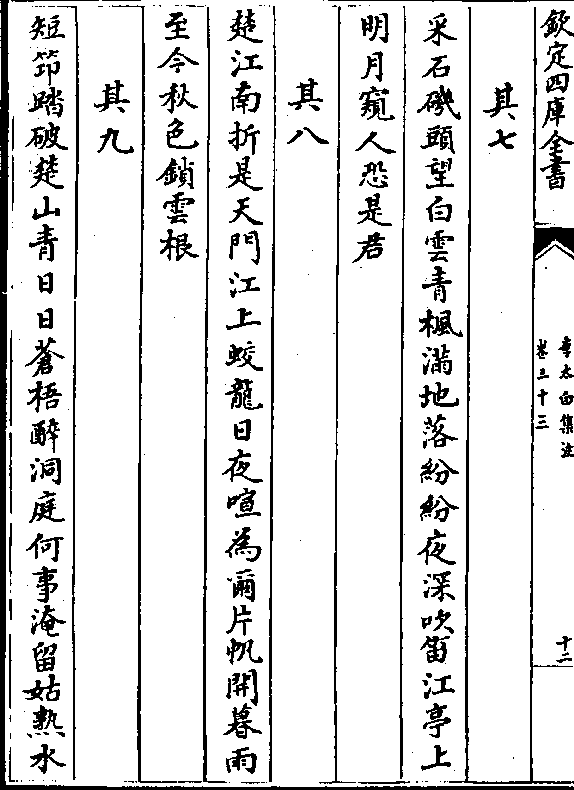 欽定四庫全書
李太白集注
卷三十三
十二
其七
采石磯頭望白雲青楓滿地落紛紛夜深吹笛江亭上
明月窺人恐是君
其八
楚江南折是天門江上蛟龍日夜喧為爾片帆開暮雨
至今秋色鎖雲根
其九
短笻踏破楚山青日日蒼梧醉洞庭何事淹留姑熟水